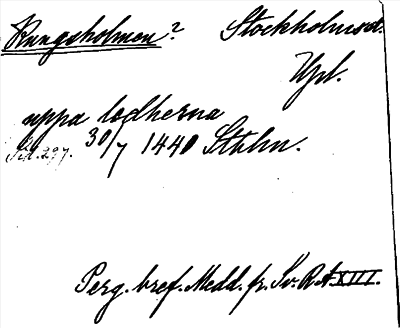 Kungsholmen? Stockholmsst.
Upl.
uppa lodherna
Sid. 297. 30/7 1440 Sthlm.
Perg. bref. Medd. fr. Sv. R.A. XIII.